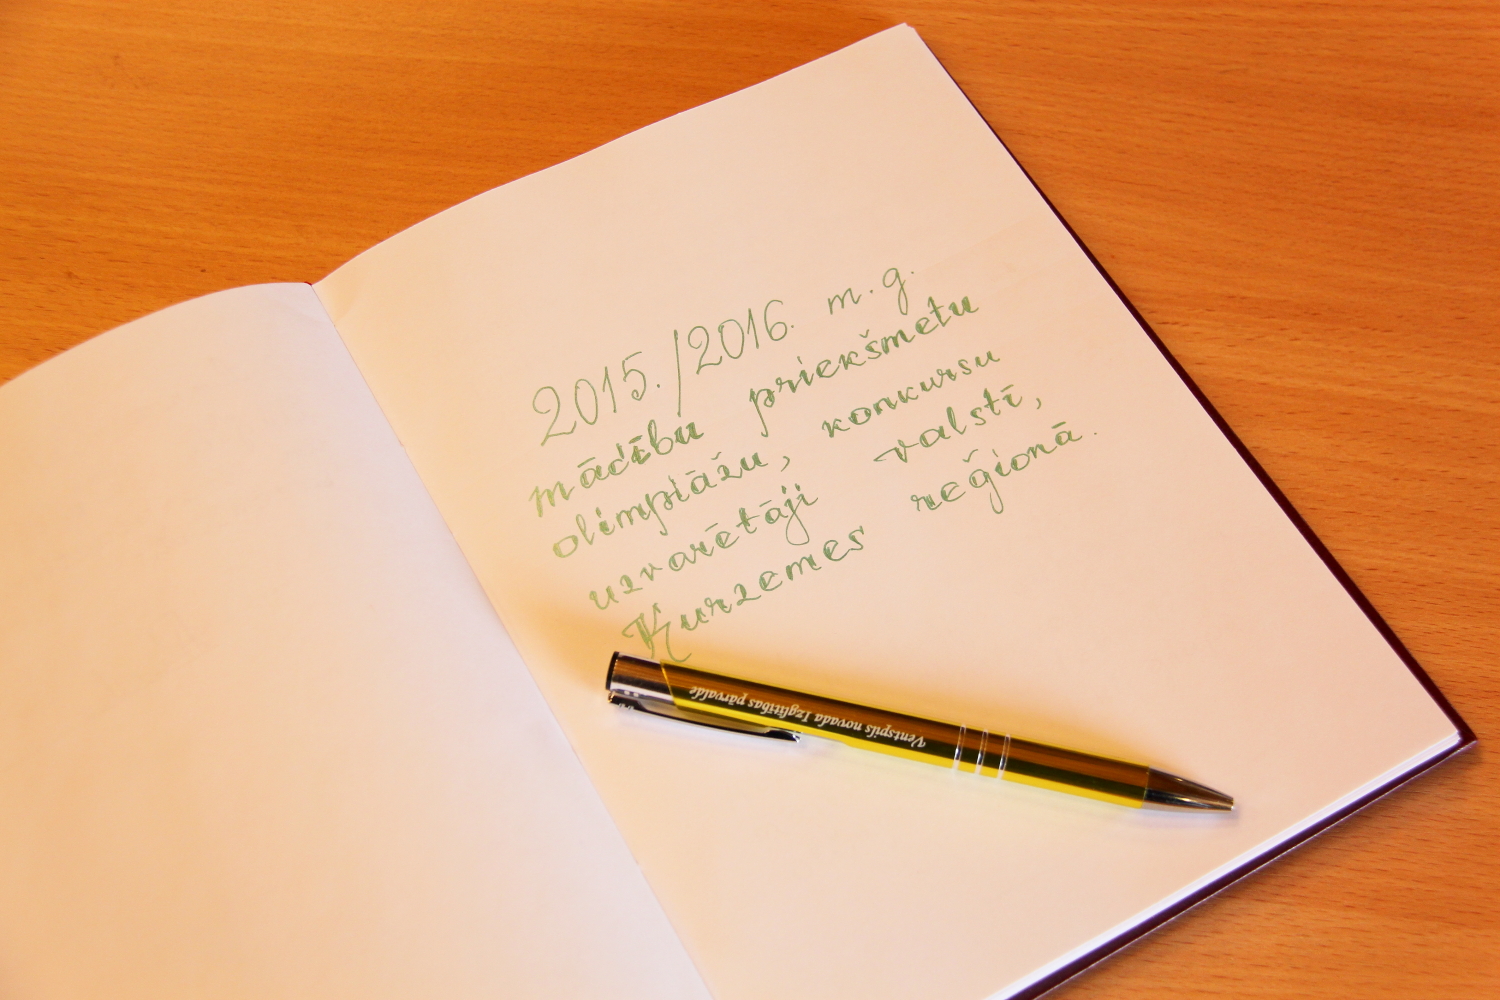 2015./2016. m.g.
mācību priekšmetu
olimpiāžu, konkursu
uzvarētāji valstī,
Kurzemes reģionā.
Ventspils novada Izglītības pārvalde